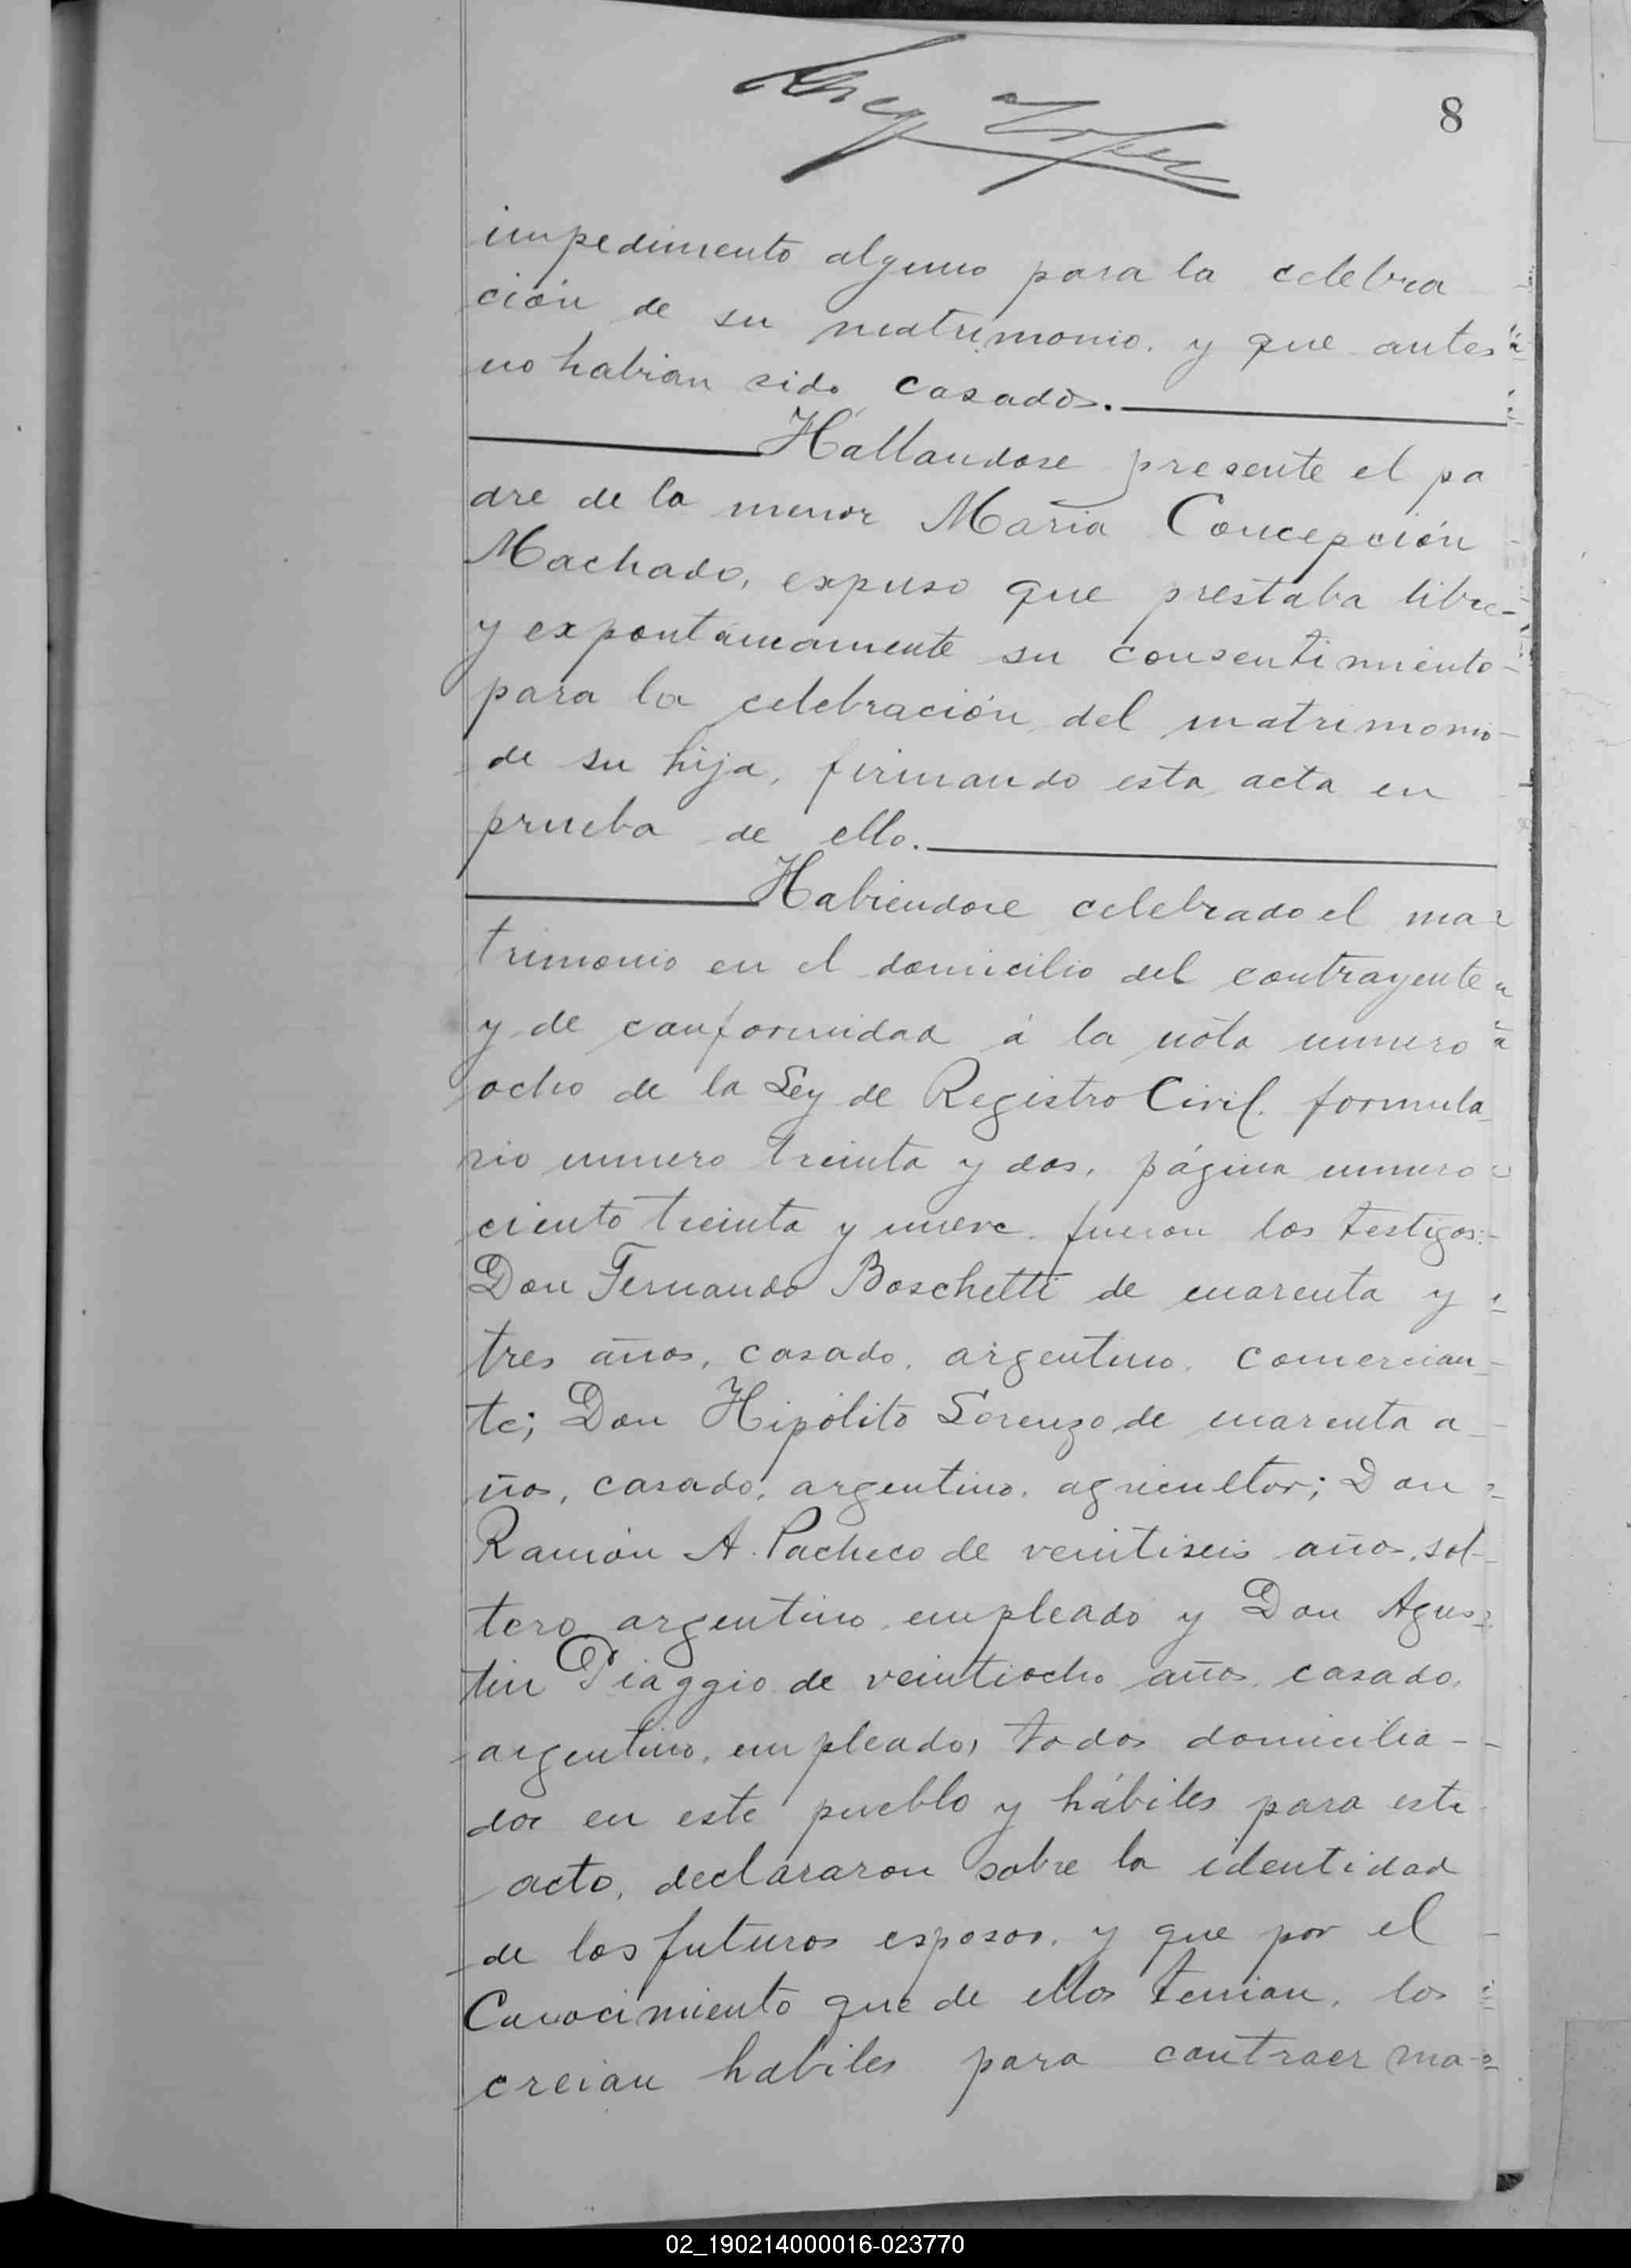 8
impedimento alguno para la celebra
ción de su matrimonio. y que antes
no habian sido casados.
Hallandose presente el pa
dre de la menor María Concepción
Machado, expuso que prestaba libre-
y expontáneamente su consentimiento
para la celebración del matrimonio
de su hija, firmando esta acta en
prueba de ello.
Habiendose celebrado el ma
trimonio en el domicilio del contrayente
y de conformidad á la nóta numero
ocho de la Ley de Registro Civil. formula
rio numero treinta y dos, página numero
ciento treinta y nueve. fueron los testigos:
Don Fernando Boschetti de cuarenta y
tres años, casado, argentino. comercian-
te; Don Hipólito Lorenzo de cuarenta a
ños, casado, argentino. agricultor; Don
Ramón A. Pacheco de veintiseis años, sol-
tero argentino, empleado y Don Agus
tin Piaggio de veintiocho años, casado,
argentino, empleado, todos domicilia-
dos en este pueblo y hábiles para este
acto, declararon sobre la identidad
de los futuros esposos. y que por el
Conocimiento que de ellos tenian, los
creian habiles para contraer ma-
02_190214000016-023770